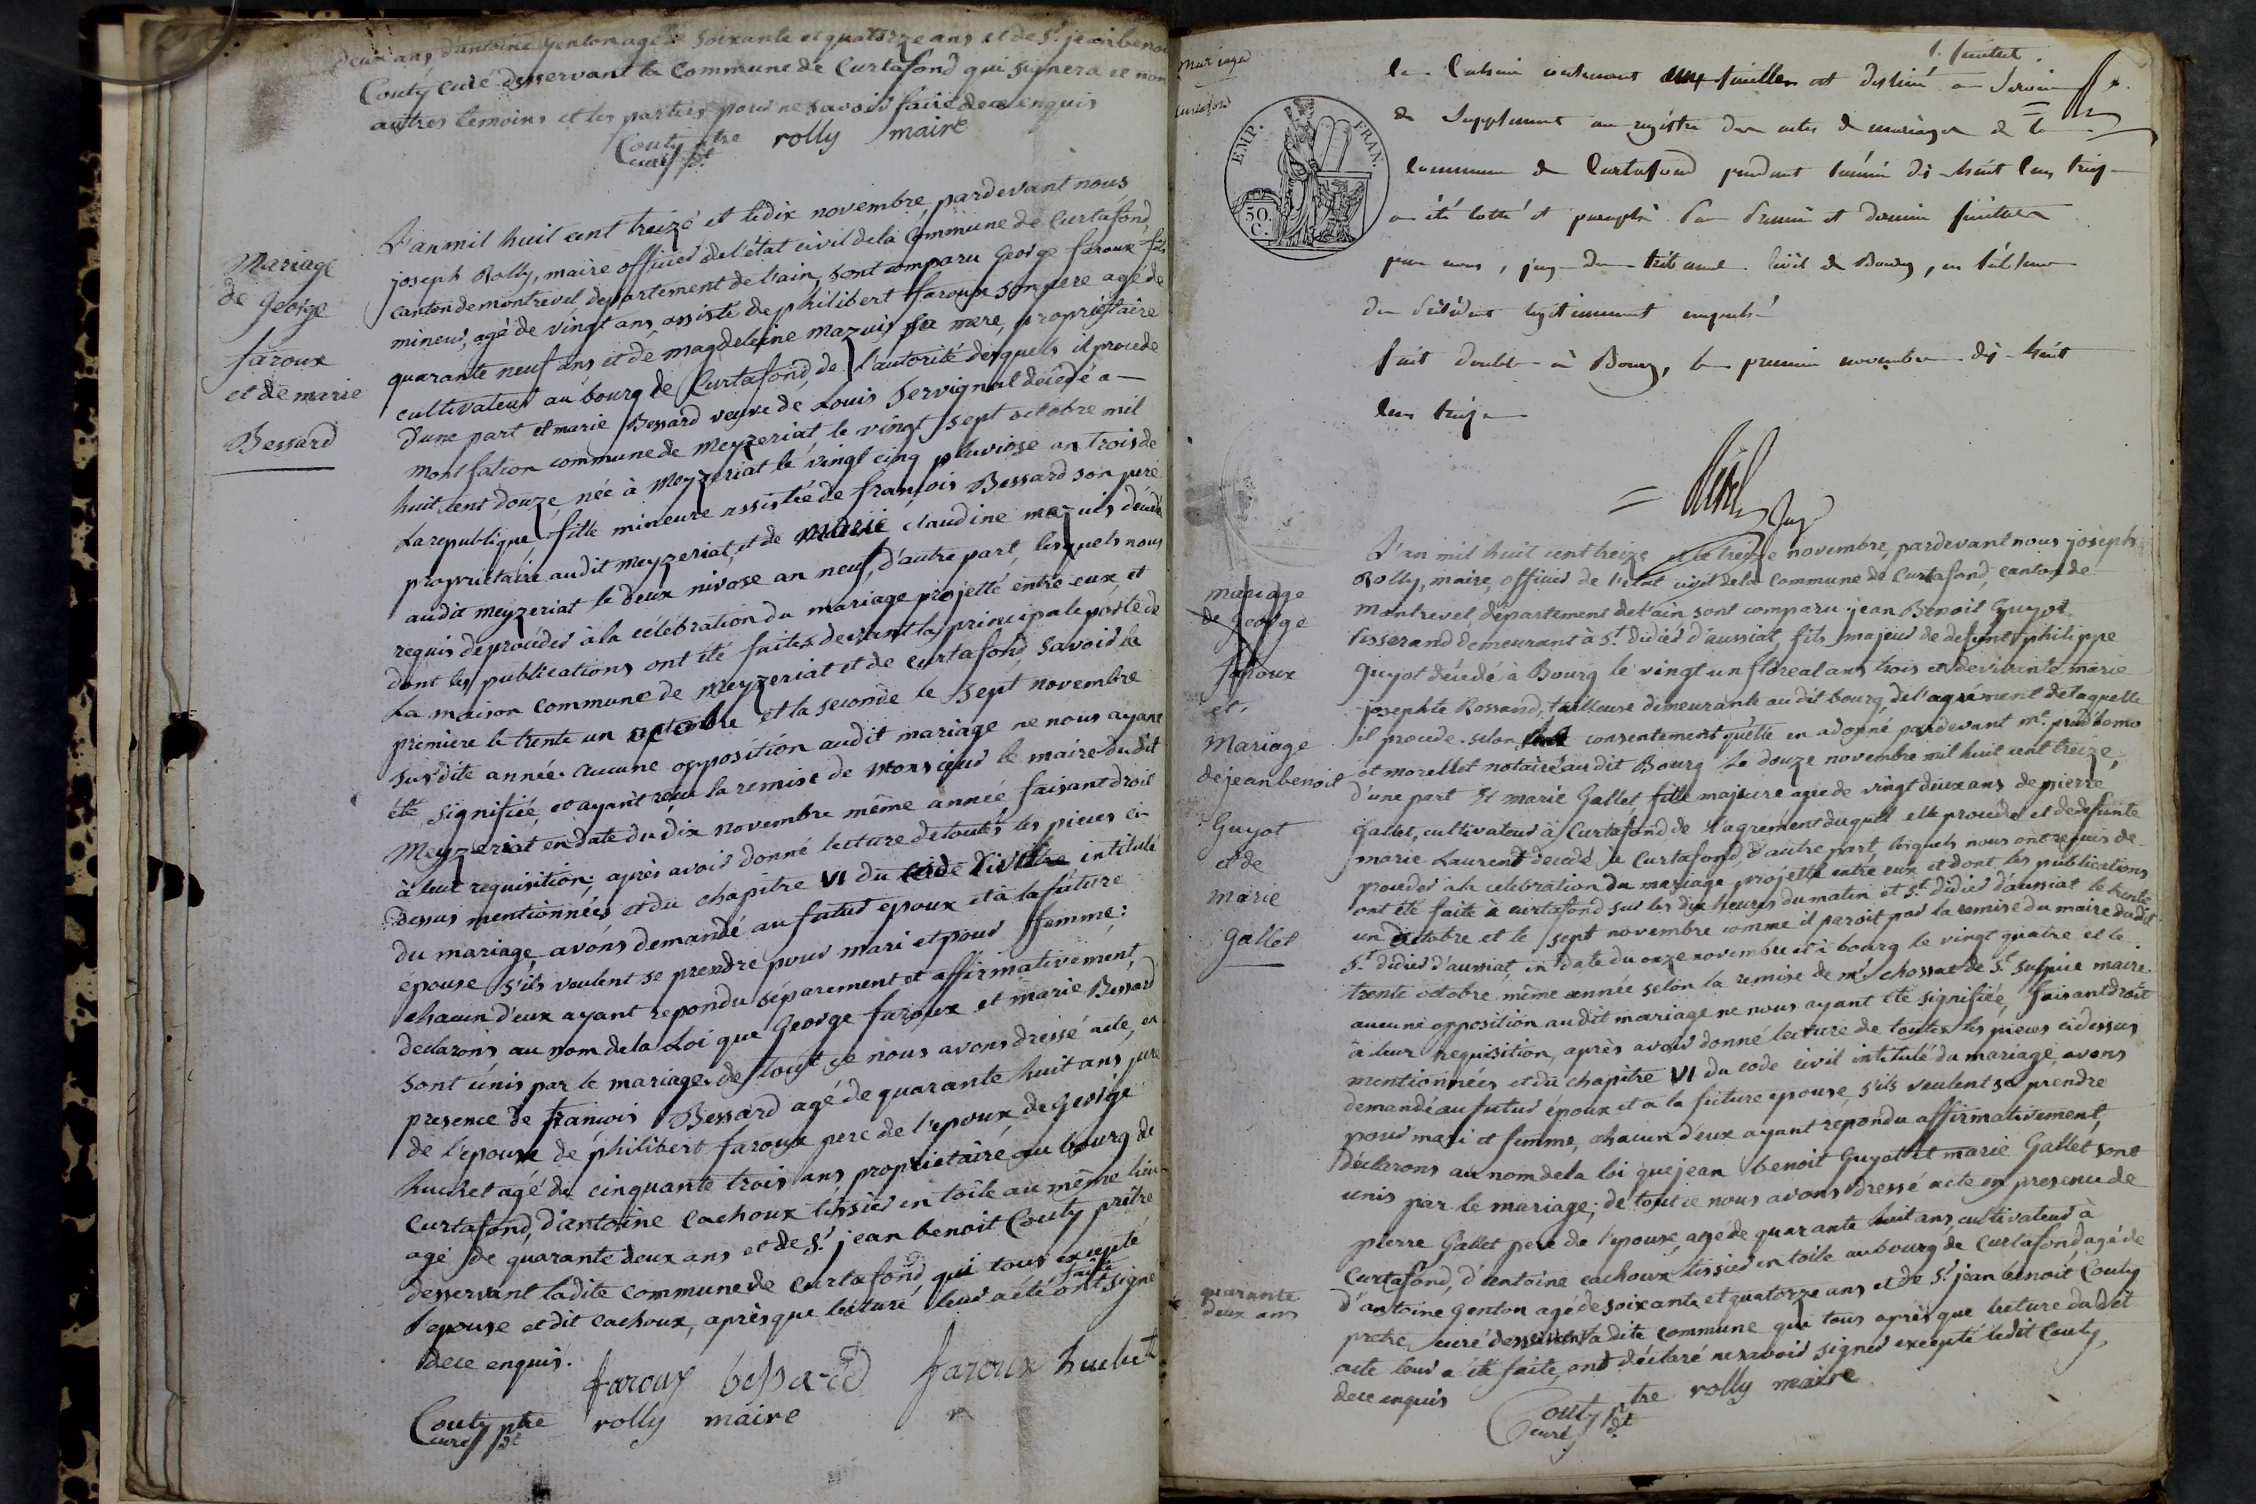 deux ans d'antoine Genton agé de soixante et quatorze ans et de Sr. jean benoit
Couty curé desservant la Commune de Curtafond qui signera et non
autres temoins et les parties pour ne savoir faire de ce enquis
Couty ptre rolly maire
curé dt
Mariage
de George
faroux
et de marie
Bessard
L'an mil huit cent treize et le dix novembre, pardevant nous
joseph Rolly, maire officier de l'état civil de la Commune de Curtafond,
canton de montrevel departement de l'ain, sont comparu George faroux fils
mineur, agé de vingt ans, assisté de philibert faroux son pere agé de
quarante neuf ans et de magdeleine mazuis sa mere, proprietaire
cultivateur au bourg de Curtafond, de l'autorité desquels il procede
d'une part et marie Bessard veuve de Louis Servignat decedé a
montfation commune de Meyzeriat, le vingt sept octobre mil
huit cent douze, née à Meyzeriat le vingt cinq pluviose an trois de
La republique, fille mineure assistée de françois Bessard son pere
proprietaire audit meyzeriat, et de marie claudine mazuis décédé
audit meyzeriat le deux nivose an neuf, d'autre part, lesquels nous
requis de procéder à la célébration du mariage projetté entre eux, et
dont les publications ont été faites devant la principale porte de
La maison commune de Meyzeriat et de curtafond, savoir la
premiere le trente un octobre et la seconde le sept novembre
susdite année. aucune opposition audit mariage ne nous ayant
été signifiée, et ayant reçu la remise de Monsieur le maire dudit
Meyzeriat en date du dix novembre même année, faisant droit
à leur requisition; après avoir donné lecture de toutes les pieces ci-
dessus mentionnées et du chapitre VI du intitulé
du mariage, avons demandé au futur epoux et à la future
épouse s'ils veulent se prendre pour mari et pour femme;
chacun d'eux ayant repondu séparement et affirmativement,
declarons au nom de la Loi que George faroux et marie Bessard
sont unis par le mariage. de tout ce nous avons dressé acte, en
presence de françois Bessard agé de quarante huit ans, pere
de l'epouse de philibert faroux pere de l'epoux, de George
huchet agé de cinquante trois ans, proprietaire au bourg de
Curtafond, d'antoine cachoux tissier en toile au même lieu
agé de quarante deux ans et de Sr. jean benoit Couty prêtre
desservant ladite commune de Curtafond qui tous excepté
l'epouse et dit cachoux, après que lecture leur a été faite ont signé
de ce enquis.
faroux bessard faroux huchet
Couty ptre rolly maire
curé dt
mariages
Curtafond
1er. feuillet
EMP. FRAN.
50. C.
Le Cahier contenant feuilles est destiné a servir
de Supplement au registre des actes de mariages de la
commune de Curtafond pendant l'année dix-huit cent treize
a été cotté et paraphé par premier et dernier feuillets
par nous, juge du tribunal Civil de Bourg, en l'absence
du Président legitimement empeché
fait double à Bourg, le premier novembre dix-huit
cent treize
Juge
mariage
de George
faroux
et
Mariage
de jean benoit
Guyot
et de
marie
Gallet
L'an mil huit cent treize et le treize novembre, pardevant nous joseph
Rolly, maire, officier de l'etat civil de la commune de Curtafond, canton de
Montrevel, département de l'ain, sont comparu jean Benoit Guyot
Tisserand demeurant à St. didier d'aussiat, fils majeur de defunt philippe
Guyot décédé à Bourg le vingt un floreal ans trois et de vivante marie
josephte Rossand, tailleuse demeurante audit bourg, de l'agrément de laquelle
il procede. selon consentement qu'elle en a donné pardevant me. prud'homo
et morellet notaire audit Bourg le douze novembre mil huit cent treize,
d'une part Et marie Gallet fille majeure agée de vingt deux ans de pierre
Gallet, cultivateur à Curtafond de l'agrément duquel elle procéde et de defunte
marie Laurent decedé à Curtafond, d'autre part, lesquels nous ont requis de
proceder à la celebration du mariage projetté entre eux et dont les publications
ont été faite à curtafond sur les dix heures du matin et St. didier d'aussiat le trente
un octobre et le sept novembre comme il paroit par la remise du maire dudit
St. didier d'aussiat, en date du onze novembre et à bourg le vingt quatre et le
trente octobre même année selon la remise de mr. chossat de St. sulpice maire.
aucune opposition audit mariage ne nous ayant été signifiée, faisant droit
à leur requisition, après avoir donné lecture de toutes les pieces ci dessus
mentionnées et du chapitre VI du code civil intitulé du mariage, avons
demandé au futur époux et à la future epouse, s'ils veulent se prendre
pour mari et femme, chacun d'eux ayant répondu affirmativement,
Déclarons au nom de la loi que jean benoit Guyot et marie Gallet sont
unis par le mariage; de tout ce nous avons dressé acte en presence de
pierre Gallet pere de l'épouse, agé de quarante huit ans, cultivateur à
Curtafond, d'antoine cachoux tissier en toile au bourg de Curtafond agé de
quarante
deux ans
d'antoine Genton agé de soixante et quatorze ans et de Sr. jean benoit Couty
pretre curé desservant la dite commune que tous après que lecture dudit
acte leur a été faite, ont déclaré ne savoir signer excepté ledit Couty,
de ce enquis
Couty ptre rolly maire
curé dt